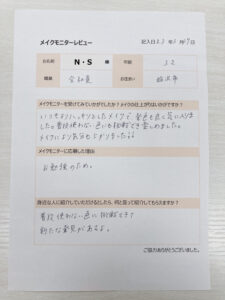 メイクモニターレビュー
記入日23年2月9日
お名前 N・S 年齢 32
職業 会社員 お住まい
メイクモニターを受けてみていかがでしたか？メイクの仕上がりはいかがですか？
いつもよりしっかりしたメイクで発色も良く気に入りま
した。普段使わない色にも挑戦でき楽しめました。
メイクにより気分も上がりました!!
メイクモニターに応募した理由
お勉強のため。
身近な人に紹介していただけるとしたら、何と言って紹介してもらえますか？
普段使わない色に挑戦できて
新たな発見があるよ。
ご協力ありがとうございました。